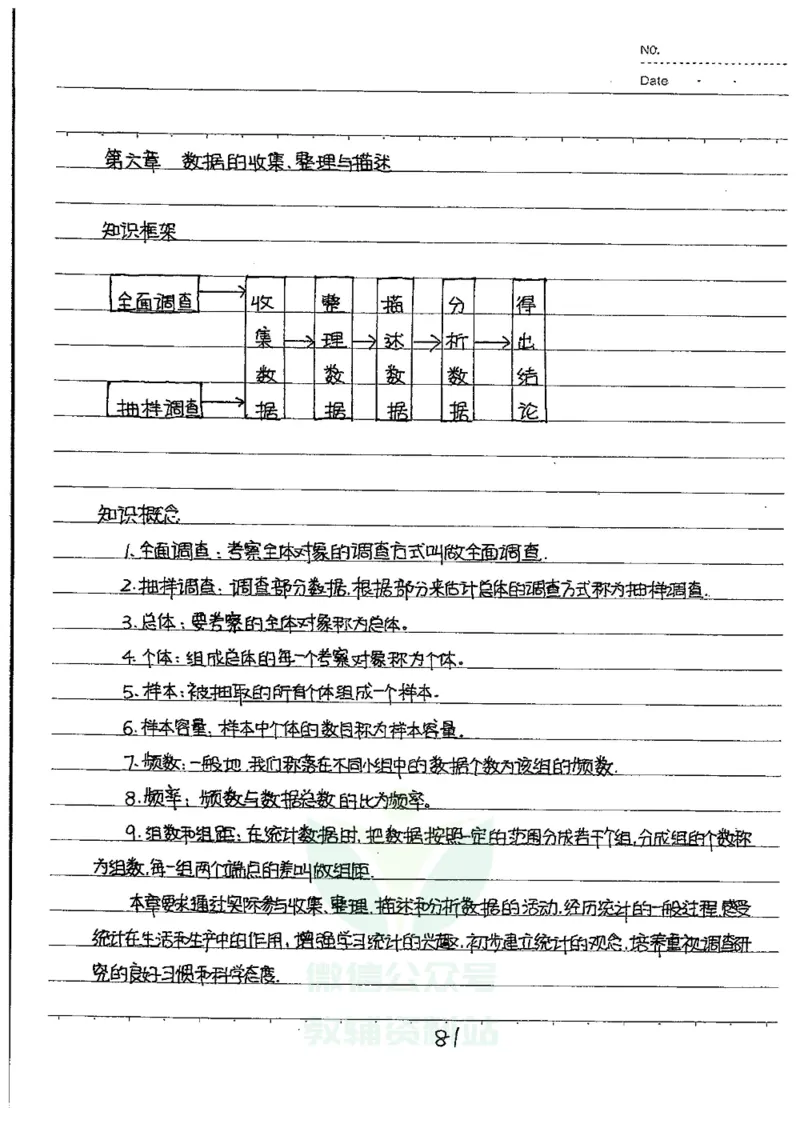 NO.
Date
第六章 数据的收集、整理与描述
知识框架
全面调查
抽样调查
收集数据
整理数据
描述数据
分析数据
得出结论
知识概念
1.全面调查:考察全体对象的调查方式叫做全面调查.
2.抽样调查:调查部分数据,根据部分来估计总体的调查方式称为抽样调查.
3.总体:要考察的全体对象称为总体。
4.个体:组成总体的每一个考察对象称为个体。
5.样本:被抽取的所有个体组成一个样本.
6.样本容量:样本中个体的数目称为样本容量。
7.频数:一般地,我们称落在不同小组中的数据个数为该组的频数.
8.频率:频数与数据总数的比为频率。
9.组数和组距:在统计数据时,把数据按照一定的范围分成若干个组,分成组的个数称
为组数,每一组两个端点的差叫做组距.
本章要求通过实际参与收集、整理、描述和分析数据的活动,经历统计的一般过程,感受
统计在生活和生产中的作用,增强学习统计的兴趣,初步建立统计的观念,培养重视调查研
究的良好习惯和科学态度.
微信公众号
教辅资料站
81